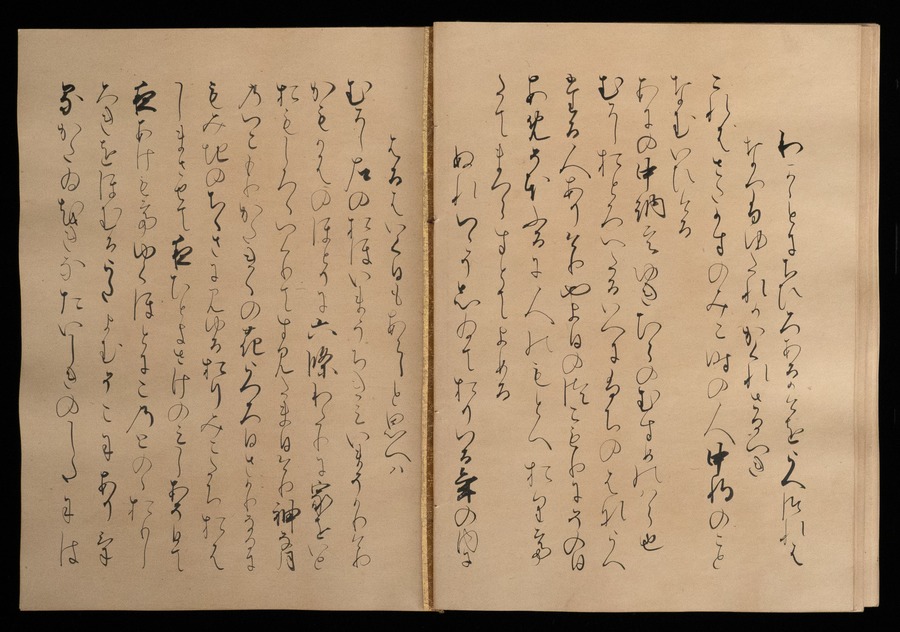 わかかとにちひろあるかけをうへつれは
なつふゆたれかかくれさるへき
これはさたかすのみこ時の人中将のこと
なむいひける
あにの中納言ゆきひらのむすめのはら也
むかしおとろへたるいへにふちのはなうへ
たる人ありけりやよひのつこもりにその日
あめそほふるに人のもとへおりて
たてまつらすとてよめる
ぬれつゝそしゐておりつる年の内に
はるはいくかもあらしと思へは
むかし左のおほいまうちきみいまそかりけり
かもかはのほとりに六條わたりに家をいと
おもしろくつくりてすみたまひけり神な月
のつこもりかたきくの花うつろひさかりなるに
もみちのちくさに見ゆるおりみこたちおは
しまさせて夜ひとよさけのみしあそひて
夜あけもてゆくほとにこのとのゝおもし
ろきをほむるうたよむそこにありけ
るかたゐおきないたしきのしたには